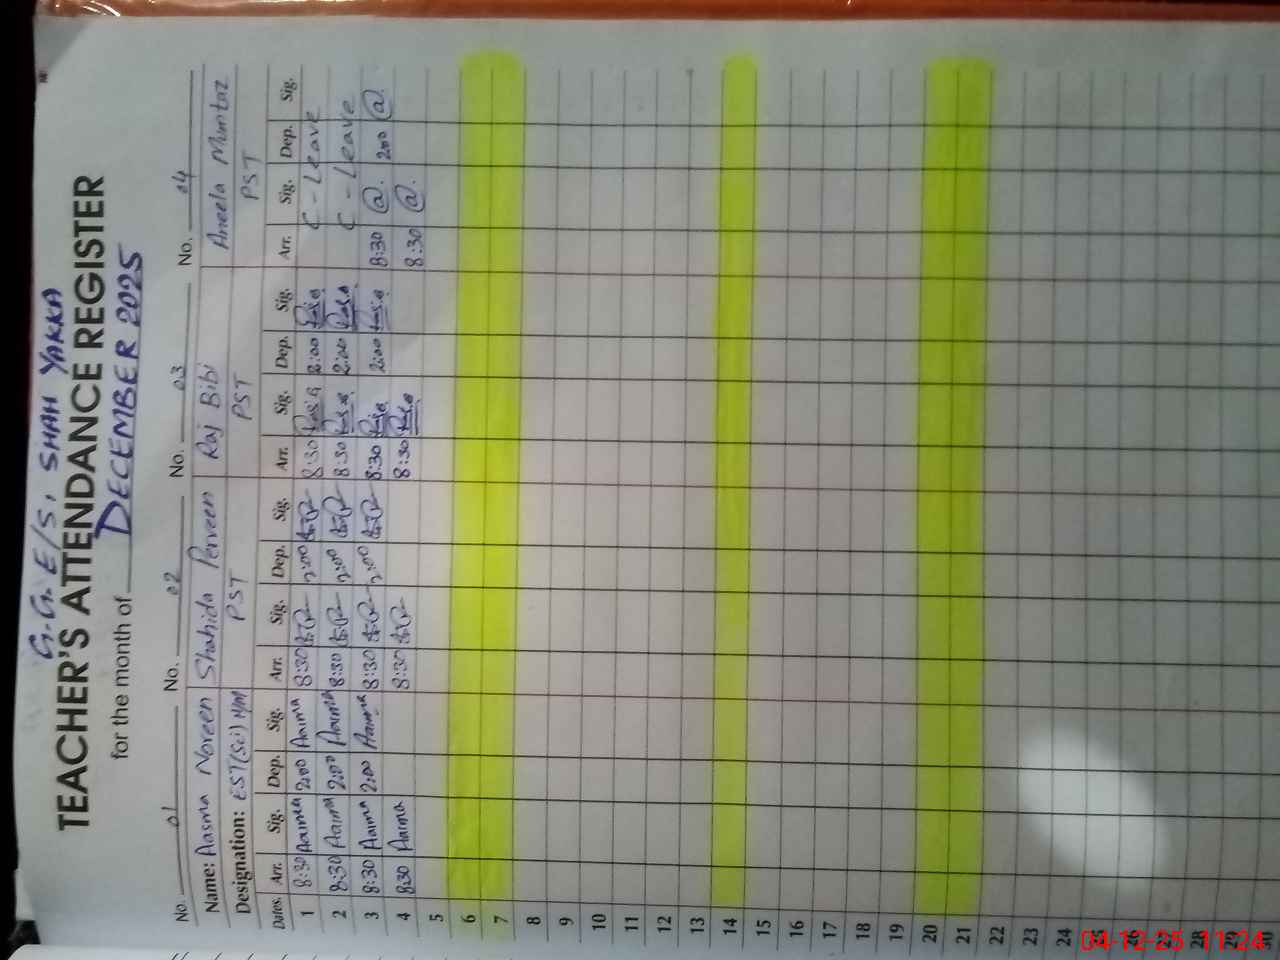 G.G.E/S, SHAH YAKKA
TEACHER'S ATTENDANCE REGISTER
for the month of DECEMBER 2025
No. 01 No. 02 No. 03 No. 04
Name: Aasma Noreen Shahida Perveen Raj Bibi Aneela Mumtaz
Designation: EST(Sci) H/M PST PST PST
Dates. Arr. Sig. Dep. Sig. Arr. Sig. Dep. Sig. Arr. Sig. Dep. Sig. Arr. Sig. Dep. Sig.
1 8:30 Aasma 2:00 Aasma 8:30 2:00 8:30 2:00 C-Leave
2 8:30 Aasma 2:00 Aasma 8:30 2:00 8:30 2:00 C-Leave
3 8:30 Aasma 2:00 Aasma 8:30 2:00 8:30 2:00 8:30 @ 2:00 @
4 8:30 Aasma 8:30 8:30 8:30 @
5
6
7
8
9
10
11
12
13
14
15
16
17
18
19
20
21
22
23
24
25
26
27
28
29
30
04-12-25 11:24